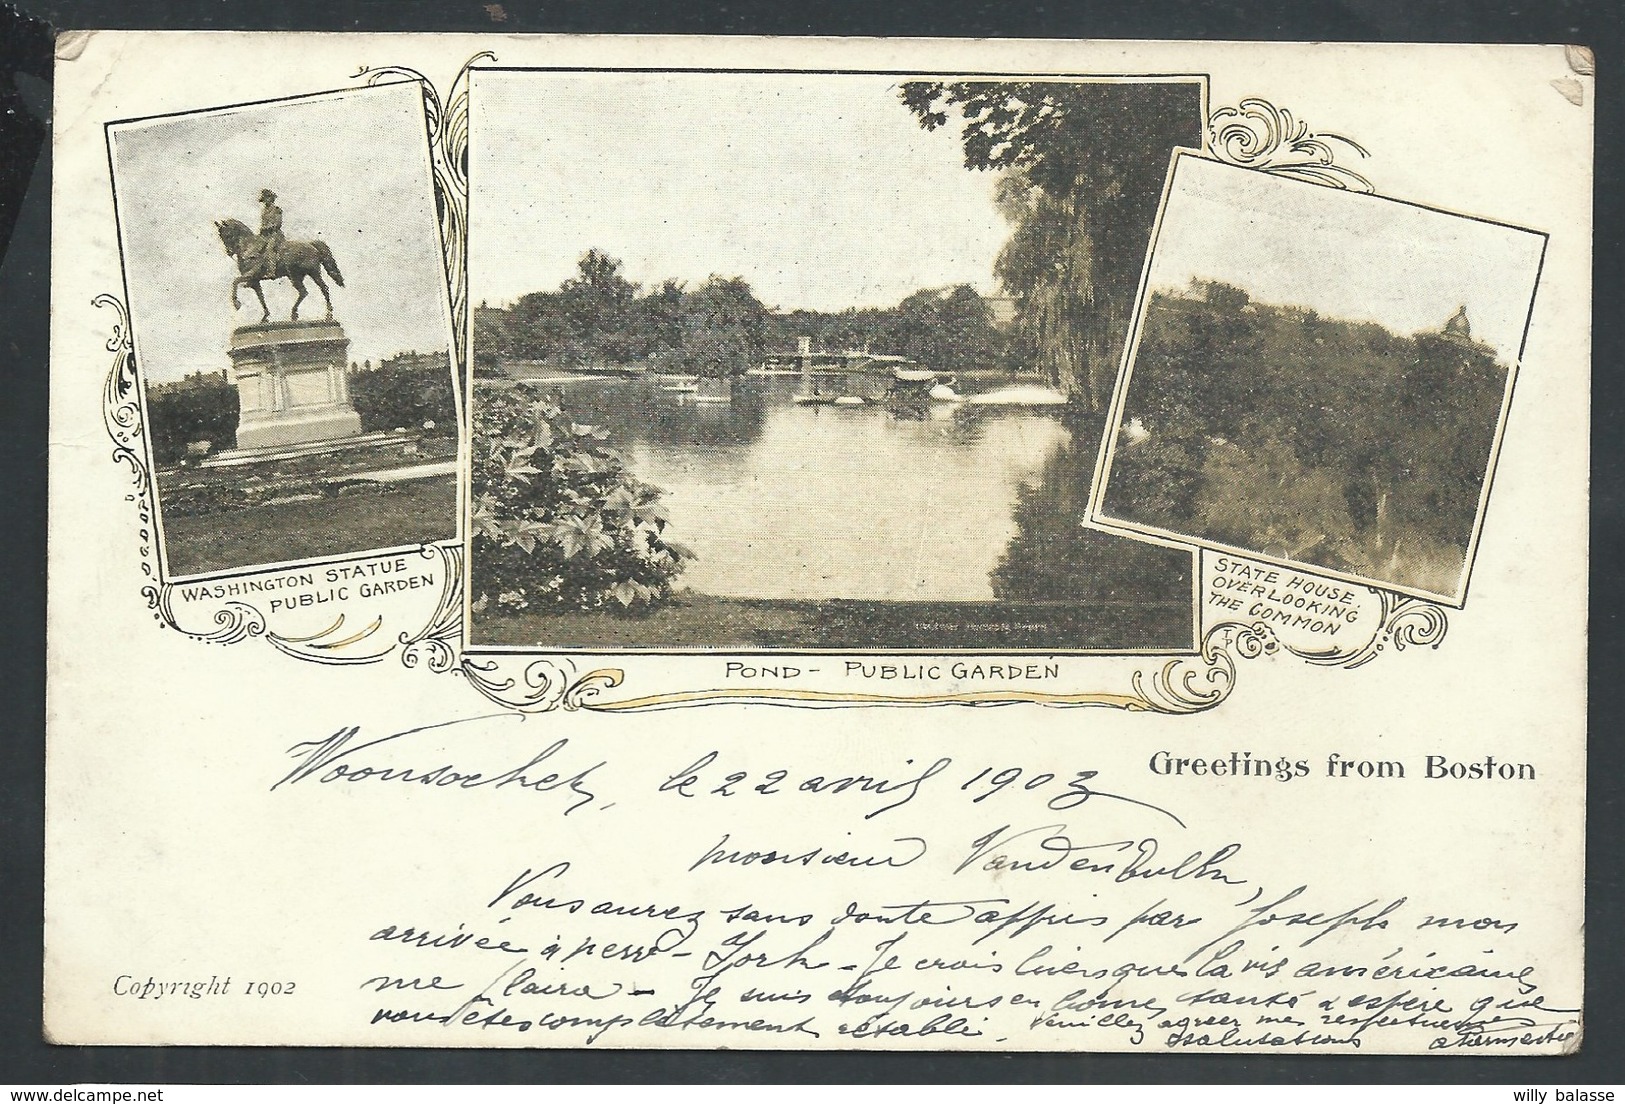 WASHINGTON STATUE
PUBLIC GARDEN
POND - PUBLIC GARDEN
STATE HOUSE,
OVERLOOKING
THE COMMON
Greetings from Boston
Woonsocket, le 22 avril 1903
monsieur
Vous aurez sans doute appris par Joseph mon
arrivée à New-York - Je crois bien que la vie américaine
me plaira - Je suis toujours en bonne santé & espère que
vous êtes complètement rétabli. Veuillez agréer mes respectueuses
salutations
Copyright 1902
willy balasse